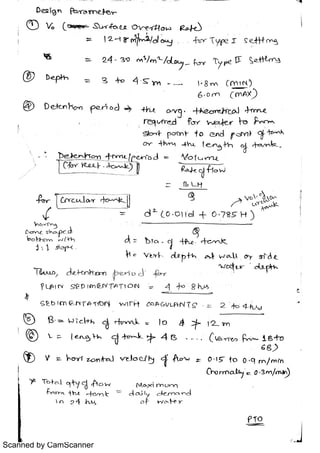 Design Parameter
① V₀ (Surface Overflow Rate)
= 12-18 m³/m²/day ... for Type I settling
= 24-30 m³/m²/day - for Type II settling
② Depth = 3 to 4.5 m - - 1.8m (min)
6.0m (max)
Detention period → the avg. theoretical time
required for water to from
start point to end point of tank
or thru the length of tank.
∴ Detention time/period = Volume
(for Rect. tank) Rate of flow
= BLH
Q
for Circular tank vol. of circular tank
= d² (0.011d + 0.785H)
Q
having
cone shaped
bottom with
1:1 slope.
d = Dia. of the tank
H = Vert. depth at wall or side
water depth
Thus, detention period for
PLAIN SEDIMENTATION = 4 to 8 hrs
& SEDIMENTATION WITH COAGULANTS = 2 to 4 hrs
⑤ B = Width of tank = 10 12m
⑥ L = length of tank 4B .... (varies from 1B to
6B)
⑦ V = horizontal velocity of flow = 0.15 to 0.9 m/min
(normally = 0.3m/min)
* Total qty of flow
from the tank
in 24 hrs
= Maximum
daily demand
of water
PTO
Scanned by CamScanner